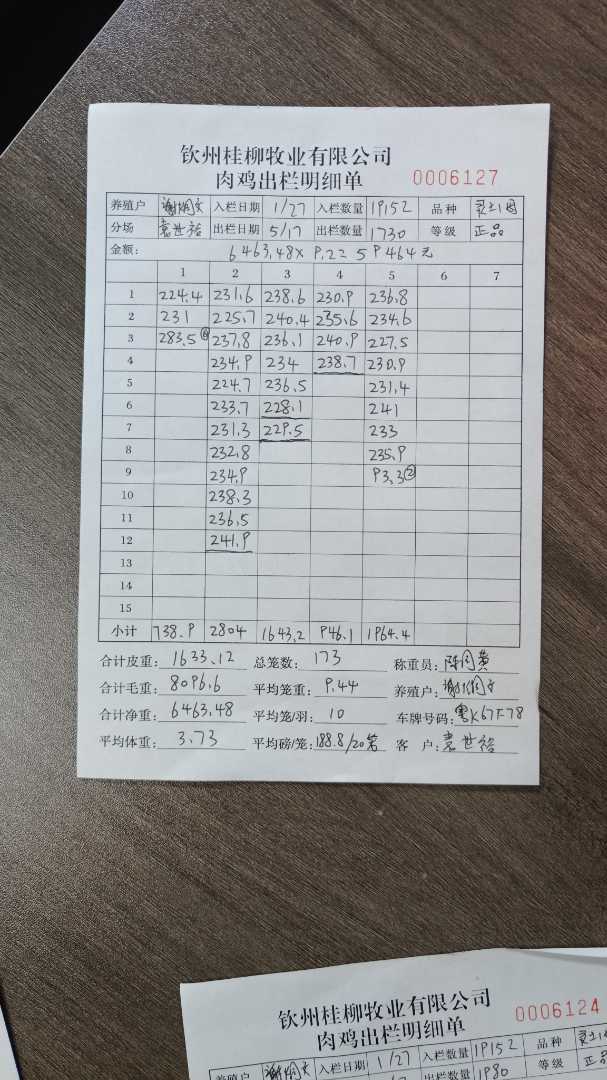 钦州桂柳牧业有限公司
肉鸡出栏明细单 0006127
养殖户 谢炳文 入栏日期 1/27 入栏数量 19152 品种 灵土1因
分场 袁世裕 出栏日期 5/17 出栏数量 1730 等级 正品
金额: 6463.48×9.2=59464元
1 2 3 4 5 6 7
1 224.4 231.6 238.6 230.9 236.8
2 231 225.7 240.4 235.6 234.6
3 283.5⑥ 237.8 236.1 240.9 227.5
4 234.9 234 238.7 230.9
5 224.7 236.5 231.4
6 233.7 228.1 241
7 231.3 229.5 233
8 232.8 235.9
9 234.9 93.3②
10 238.3
11 236.5
12 241.9
13
14
15
小计 738.9 2804 1643.2 946.1 1964.4
合计皮重: 1633.12 总笼数: 173 称重员:
合计毛重: 8096.6 平均笼重: 9.44 养殖户: 谢炳文
合计净重: 6463.48 平均笼/羽: 10 车牌号码: 粤K67F78
平均体重: 3.73 平均磅/笼: 188.8/20笼 客户: 袁世裕
钦州桂柳牧业有限公司
肉鸡出栏明细单 0006124
养殖户 谢炳文 入栏日期 1/27 入栏数量 19152 品种
出栏数量 1980 等级 正品